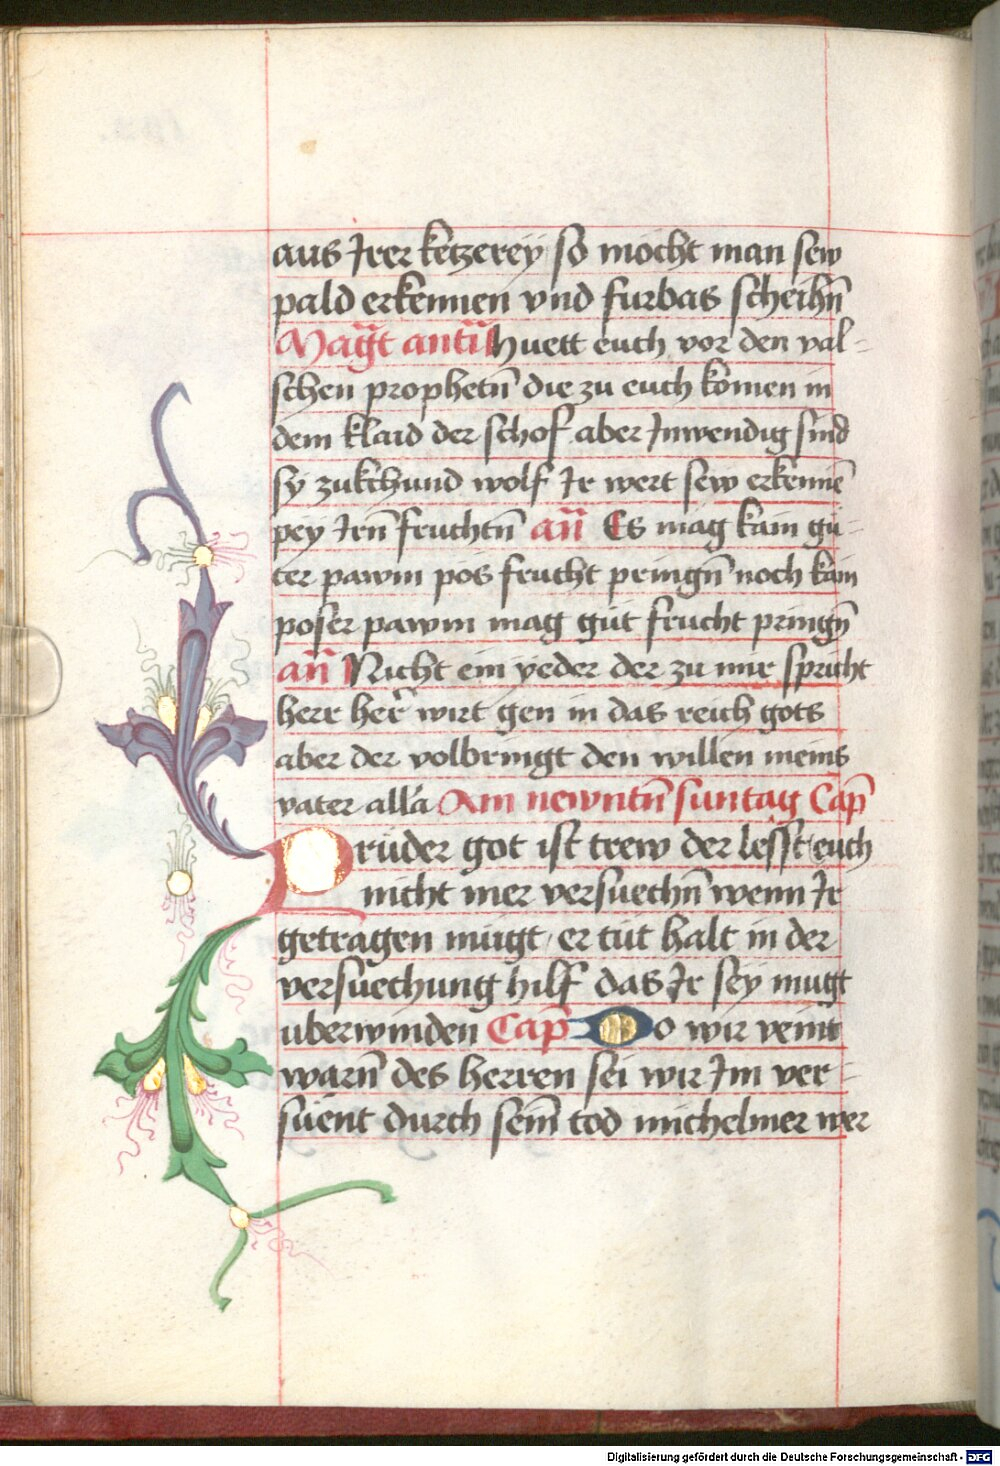 aus Irer ketzerey so mocht man sew
pald erkennen vnd furbas scheihn̄
Magt̄ antīHuett euch vor den val=
schen prophetn̄ die zu euch komen in
dem klaid der schof aber Inwendig sind
sy zukchund wolf Ir wert sew erkenne̅
pey Irn̄ feuchtn̄ an̄ Es mag kain gu=
ter pawm pos frucht pringn̄ noch kain
poser pawm mag gut frucht pringn̄
an̄ Nicht ein yeder der zu mir spricht
herr her̄ wirt gen in das reich gots
aber der volbringt den willen meins
vater alla Am newntn̄ suntag Cap̄
Prüder got ist trew der lesst euch
nicht mer versuechn̄ wenn Ir
getragen mügt er tüt halt in der
versuechung hilf das Ir sey mugt
uberwinden Cap̄ Do wir veint
warn̄ des herren sei wir Im ver=
süent durch sein̄ tod michelmer wer
Digitalisierung gefördert durch die Deutsche Forschungsgemeinschaft - DFG